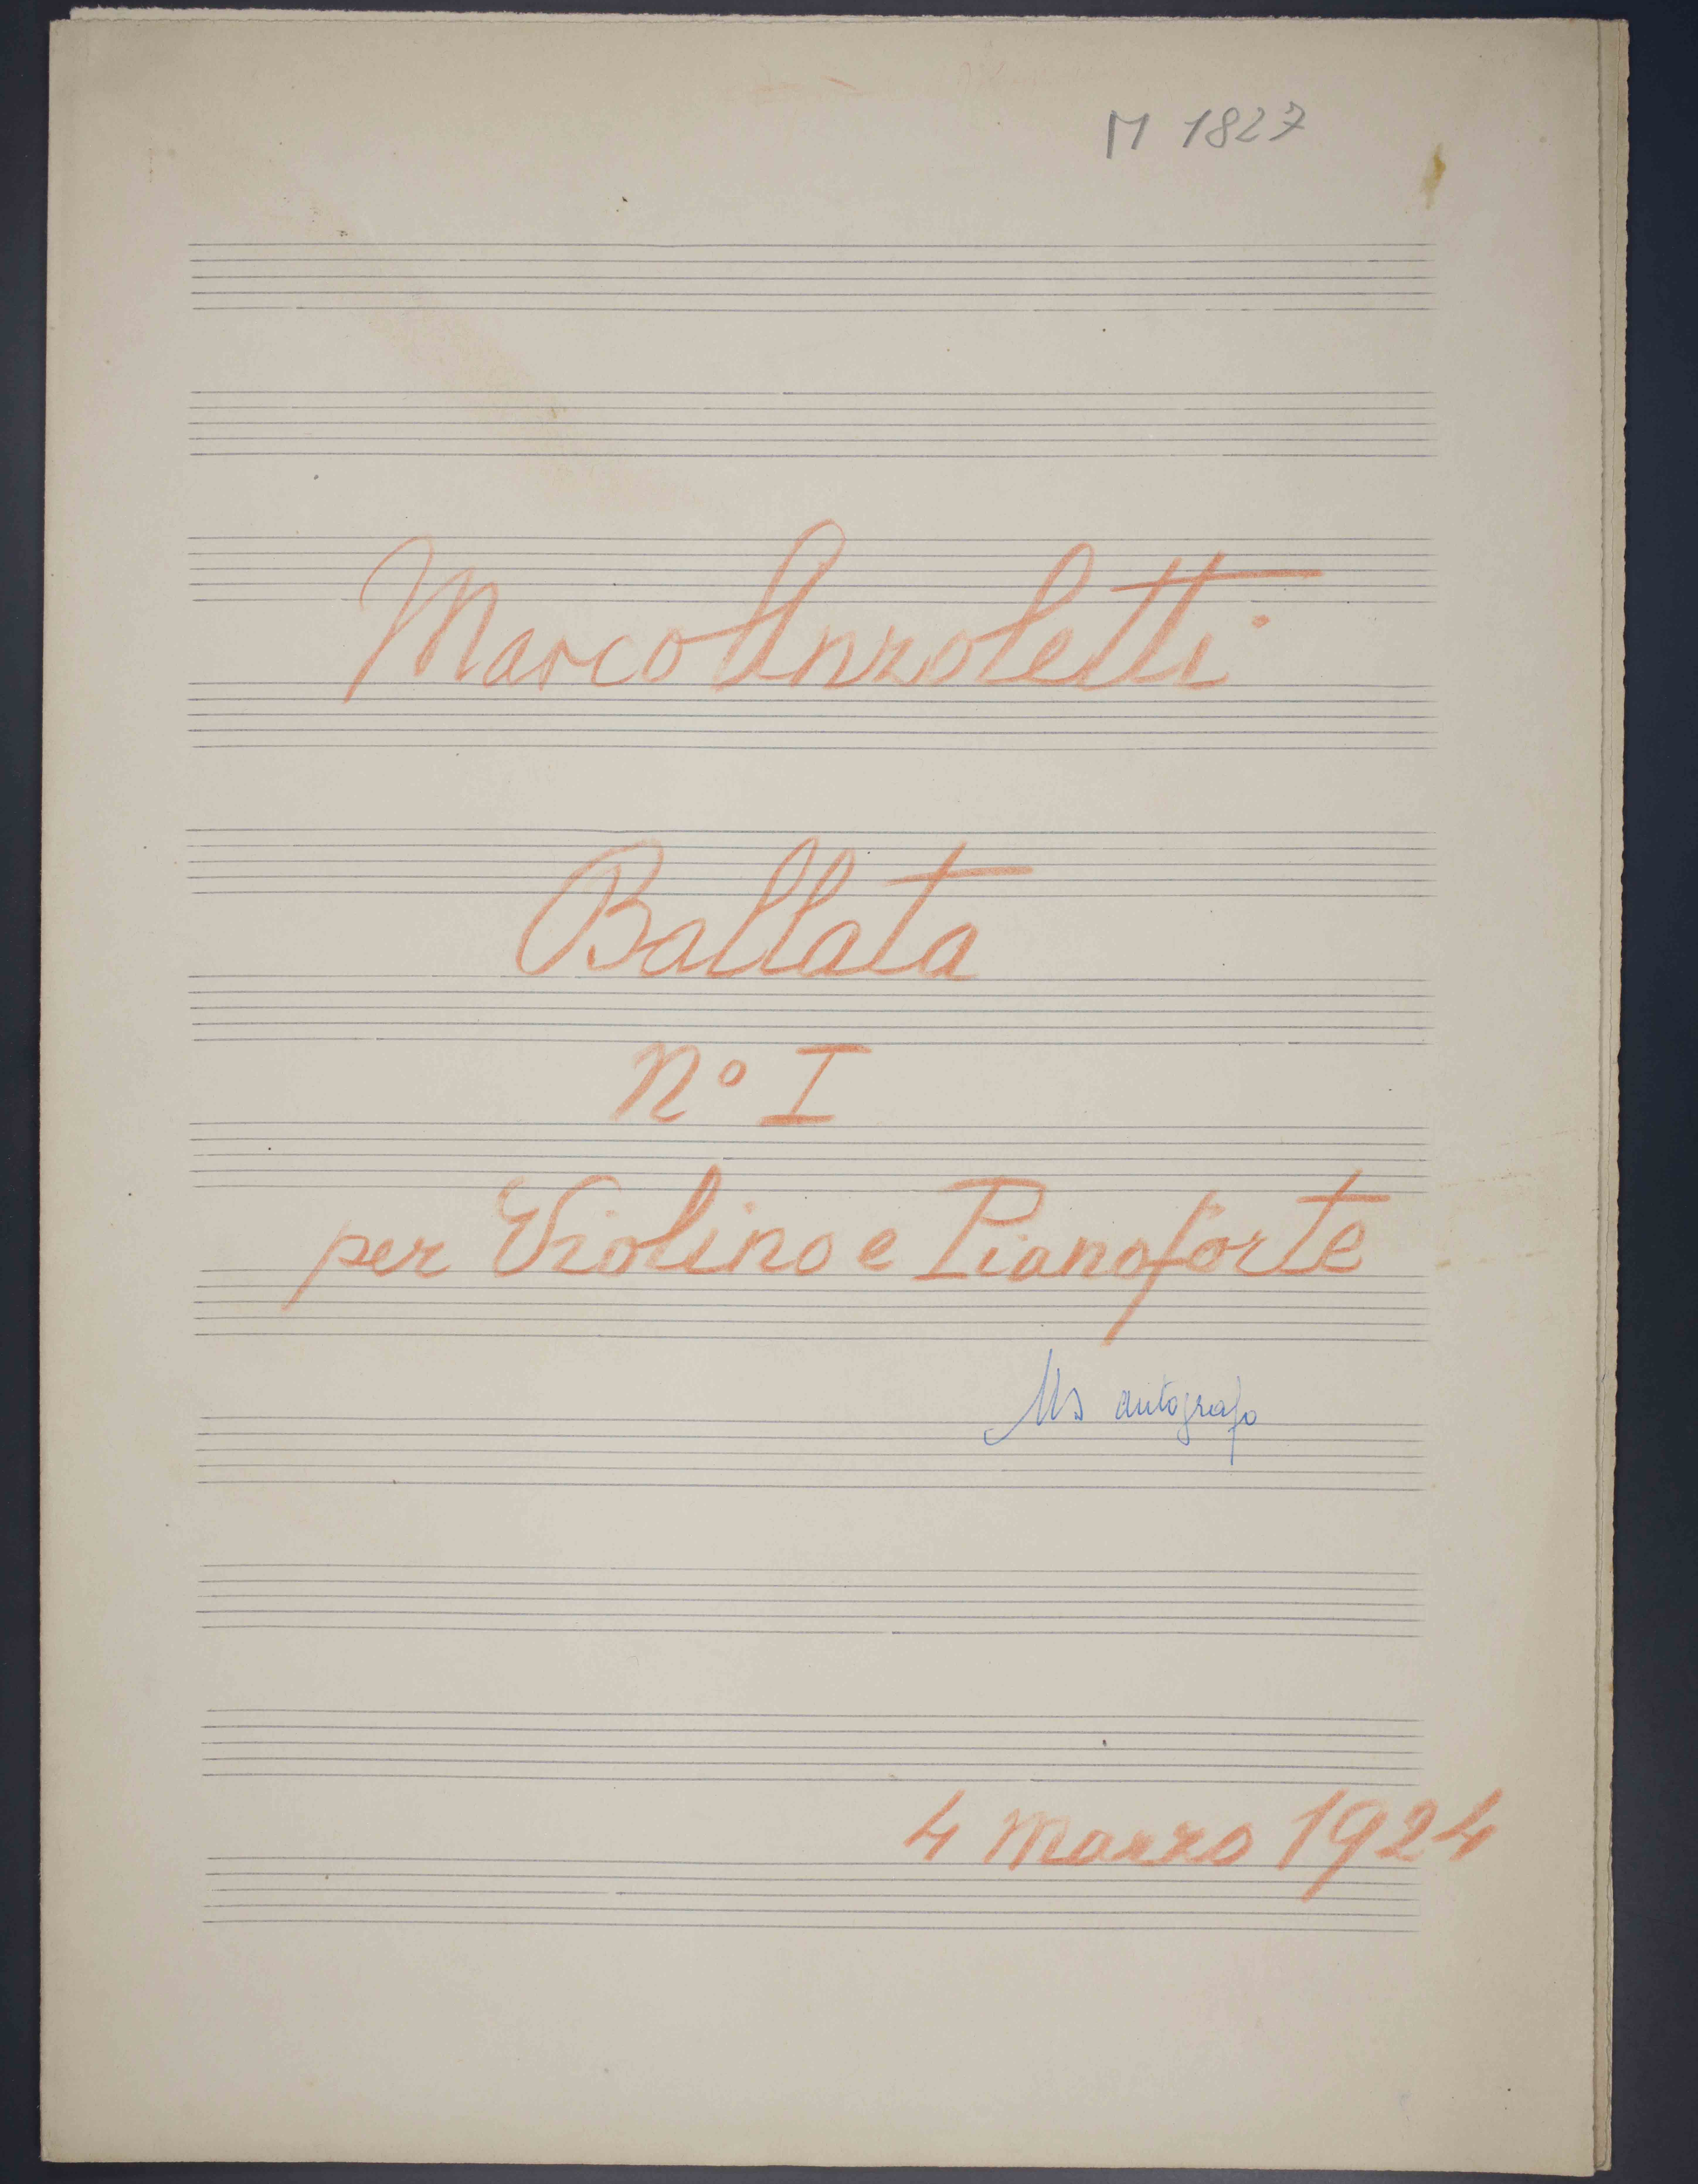 M 1827
Marco Anzoletti
Ballata
No I
per Violino e Pianoforte
Ms autografo
4 Marzo 1924